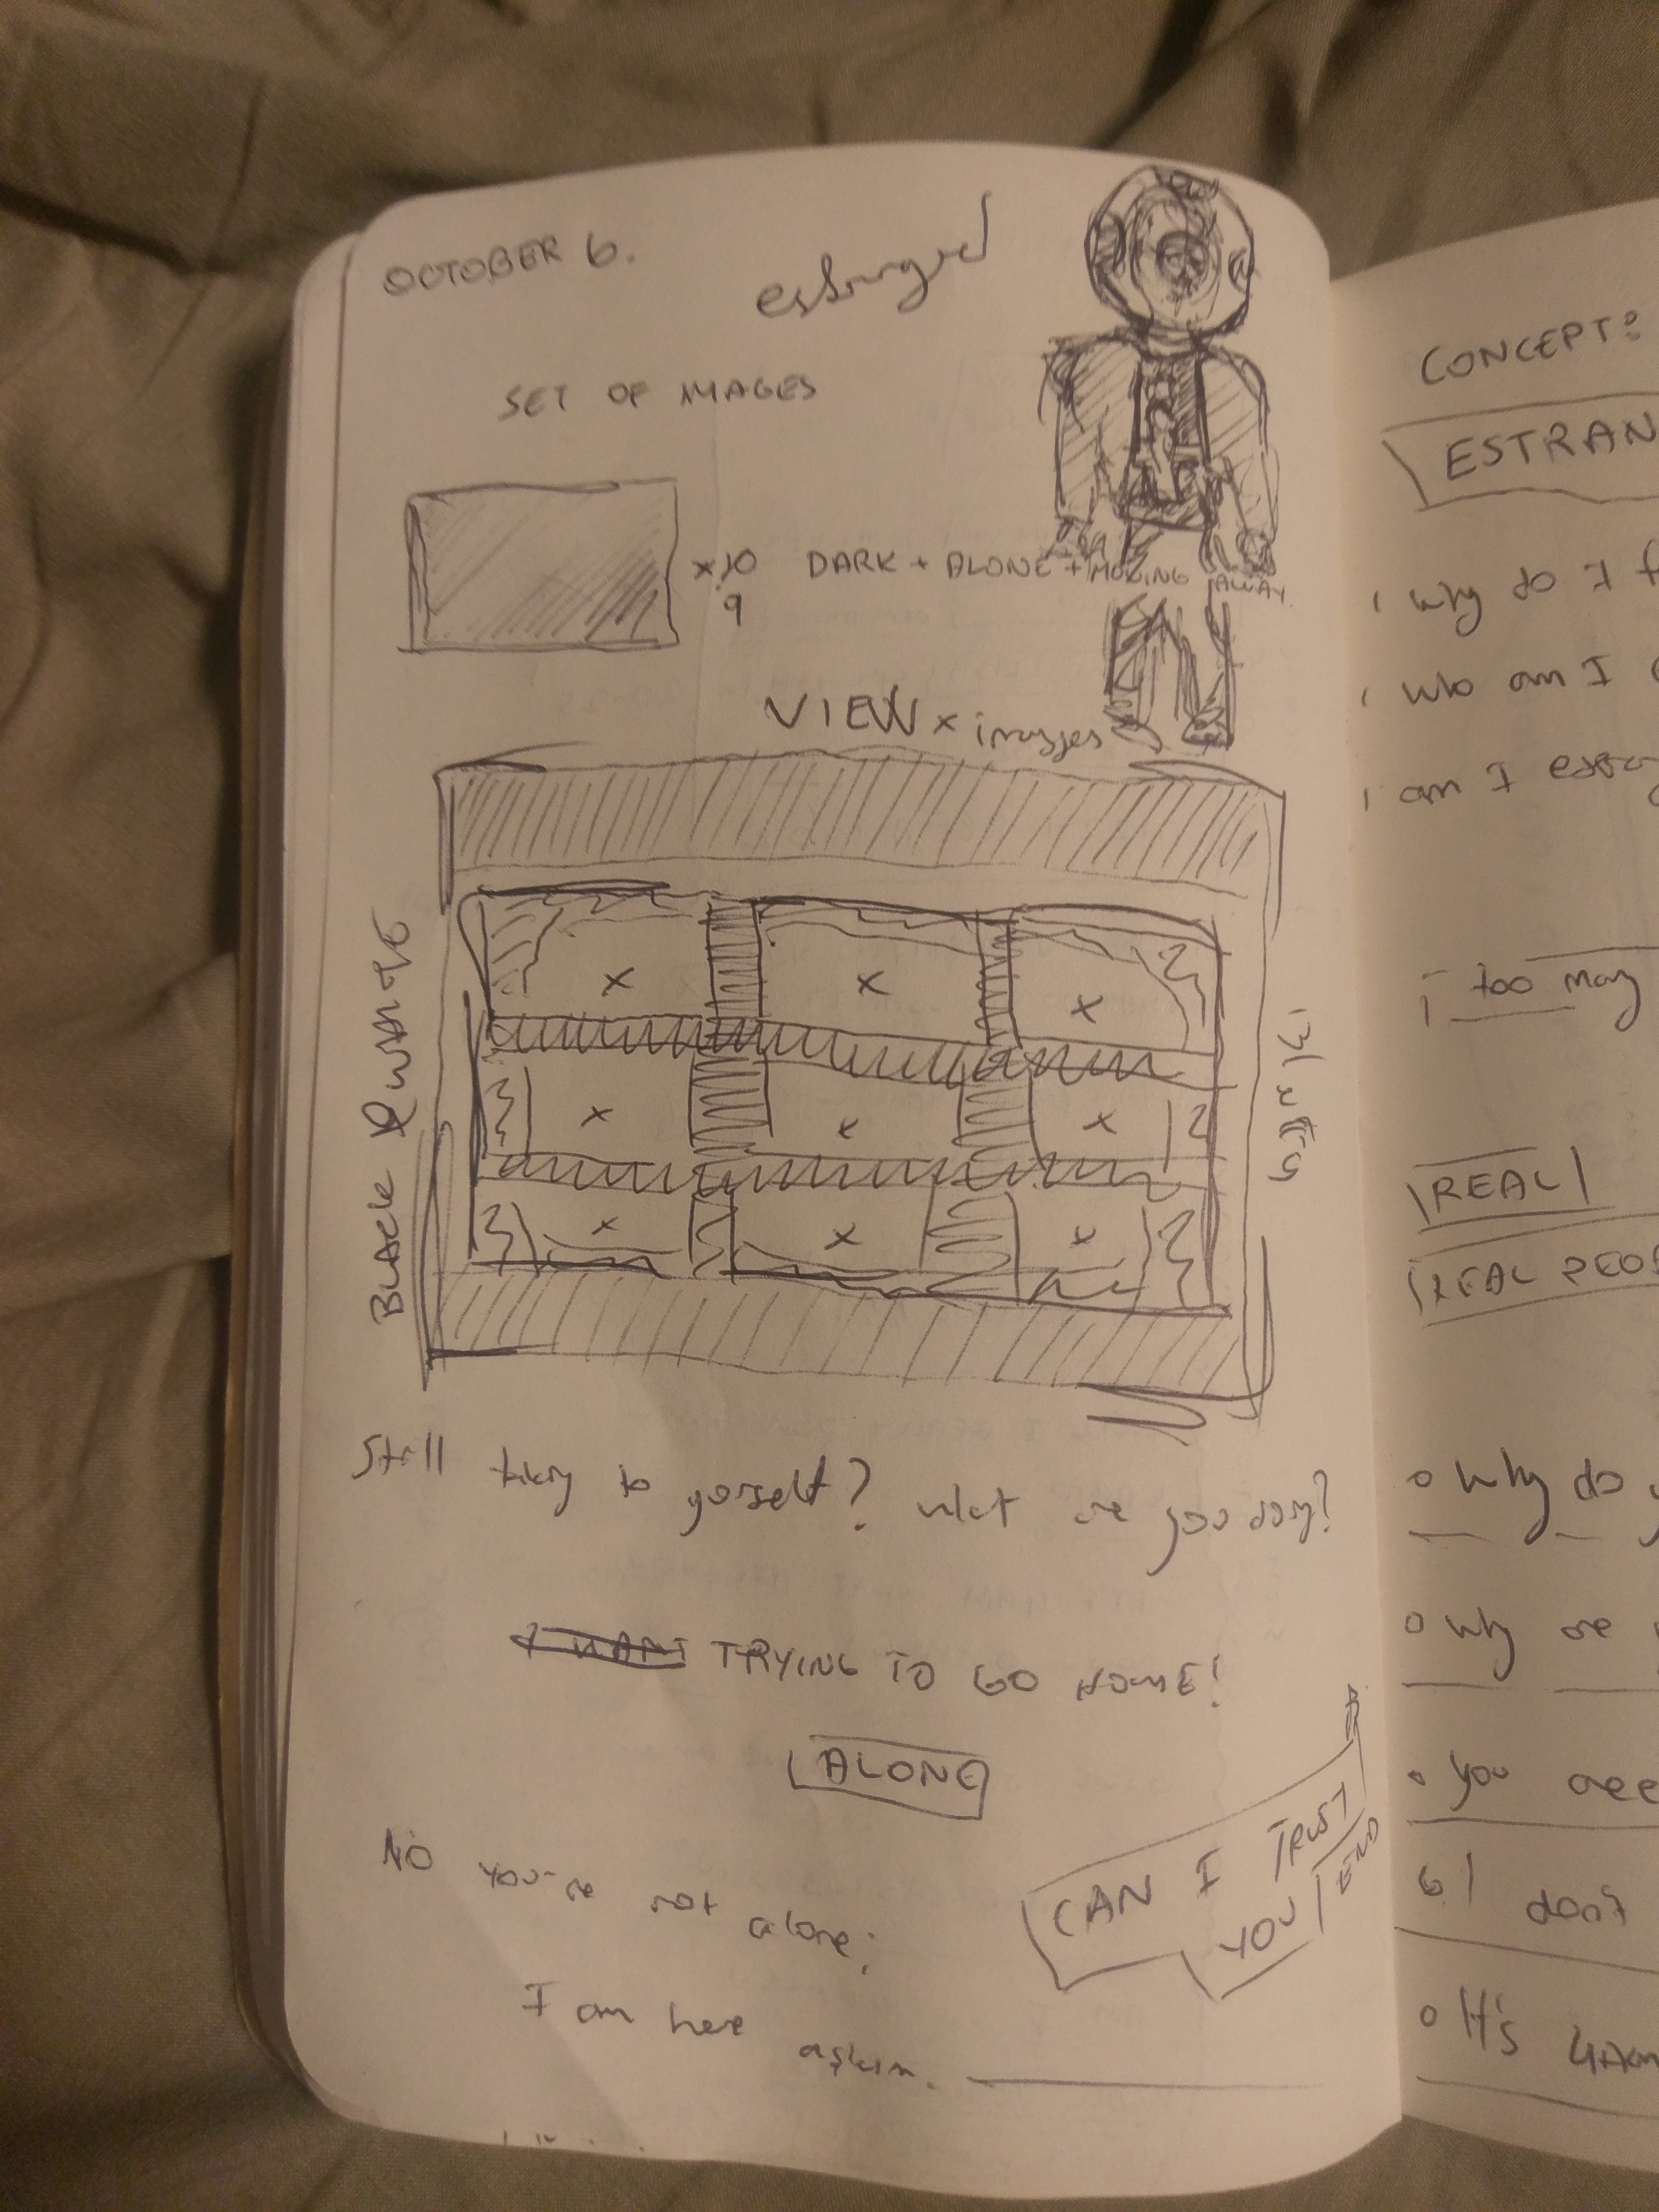 OCTOBER 6.
estranged
SET OF IMAGES
x 10 DARK + ALONE + MOVING AWAY
9
VIEW x images
BLACK & WHITE
x x x
x x x
x x x
Still to yourself? what are you doing?
I WANT TRYING TO GO HOME!
ALONE
NO you're not alone;
I am here
aşkım.
CAN I TRUST
YOU
END
CONCEPT:
ESTRAN
why do I f
who am I
am I estra
i too many
REAL
REAL PEOP
why do y
why are
you are
I don't
It's